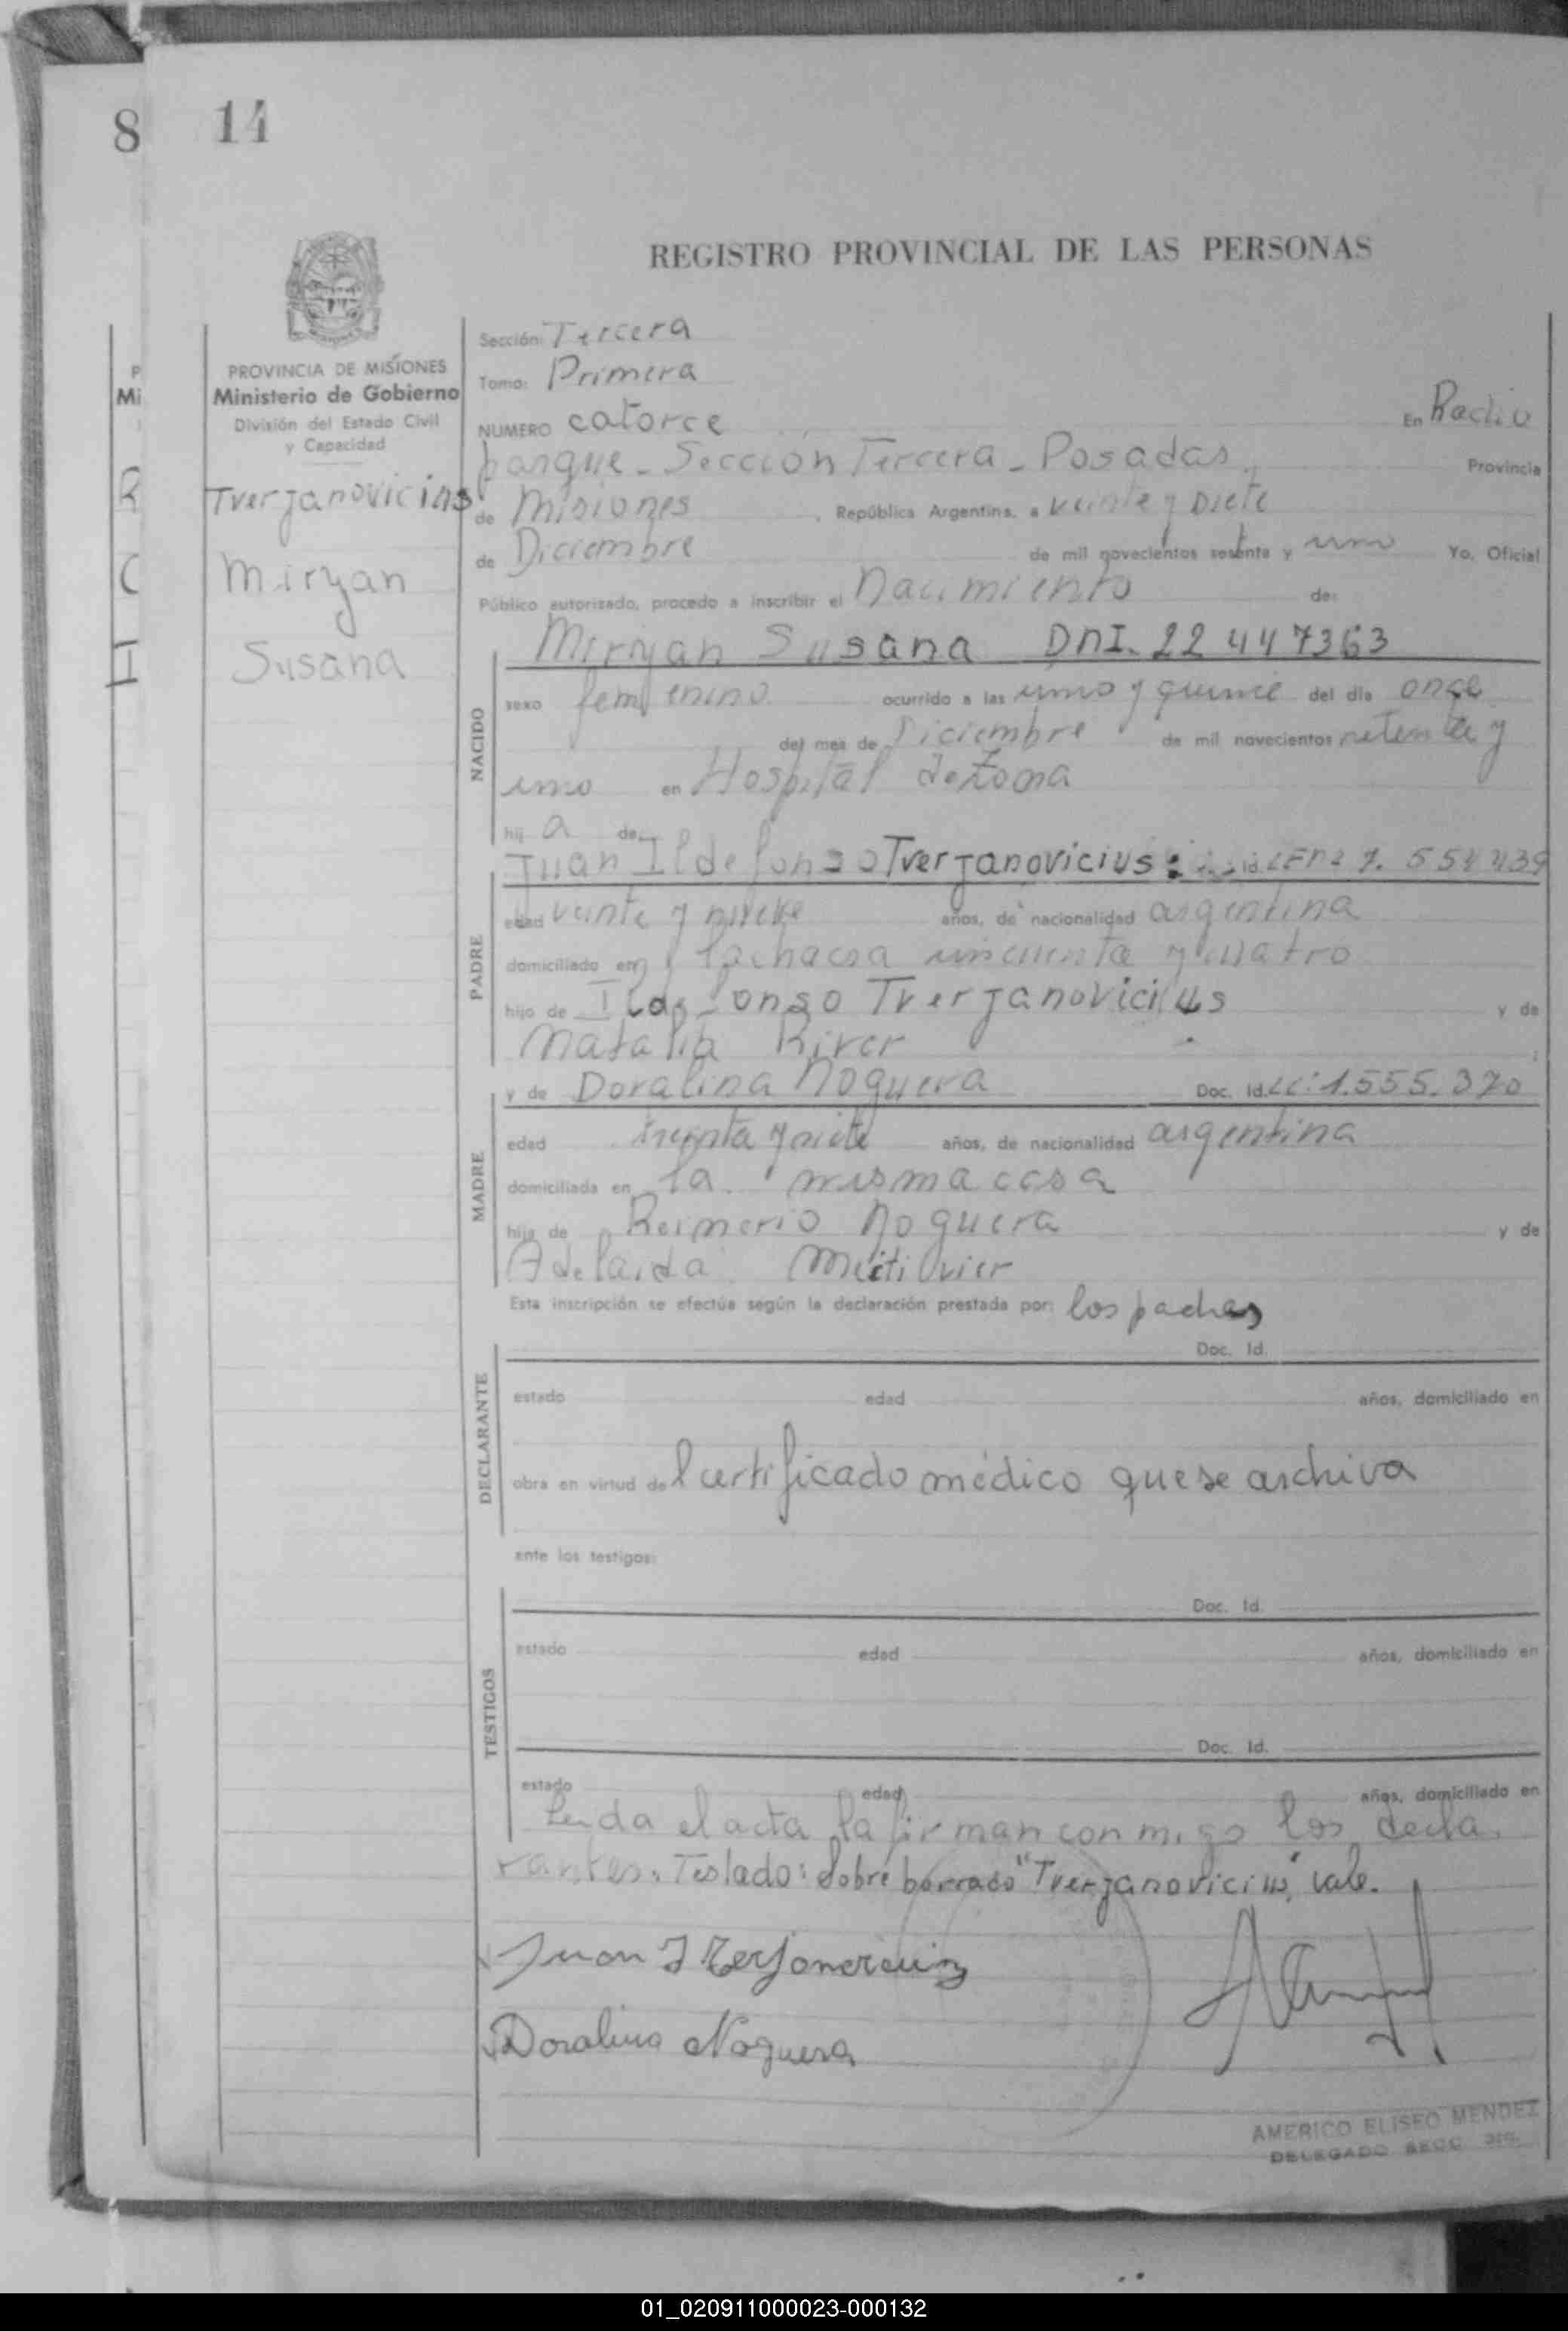 8 14
REGISTRO PROVINCIAL DE LAS PERSONAS
PROVINCIA DE MISIONES
Ministerio de Gobierno
División del Estado Civil
y Capacidad
P
Mi
R
C
I
Tverjanovicius
Miryan
Susana
Sección: Tercera
Tomo: Primera
NUMERO catorce En Radio
parque - Sección Tercera - Posadas, Provincia
de Misiones, República Argentina, a veinte y siete
de Diciembre de mil novecientos setenta y uno Yo, Oficial
Público autorizado, procedo a inscribir el Nacimiento de:
Miryan Susana DNI. 22 447363
NACIDO
sexo femenino ocurrido a las uno y quince del día once
del mes de Diciembre de mil novecientos setenta y
uno en Hospital de Zona
hij a de
Juan Ildefonso Tverjanovicius: Id. 7.554439
PADRE
edad veinte y nueve años, de nacionalidad argentina
domiciliado en chacra cincuenta y cuatro
hijo de Ildefonso Tverjanovicius y de
Natalia River
y de Doralina Noguera Doc. Id. LC: 1.555.370
MADRE
edad treinta y siete años, de nacionalidad argentina
domiciliada en la misma casa
hija de Reimerio Noguera y de
Adelaida
Esta inscripción se efectúa según la declaración prestada por: los padres
Doc. Id.
DECLARANTE
estado edad años, domiciliado en
obra en virtud del certificado médico que se archiva
ante los testigos:
Doc. Id.
TESTIGOS
estado edad años, domiciliado en
Doc. Id.
estado edad años, domiciliado en
Leida el acta la firman conmigo los decla
rantes. Teslado: sobre borrado "Tverjanovicius" vale.
Juan I
Doralina Noguera
AMERICO ELISEO MENDEZ
DELEGADO SECC 3ra.
01_020911000023-000132